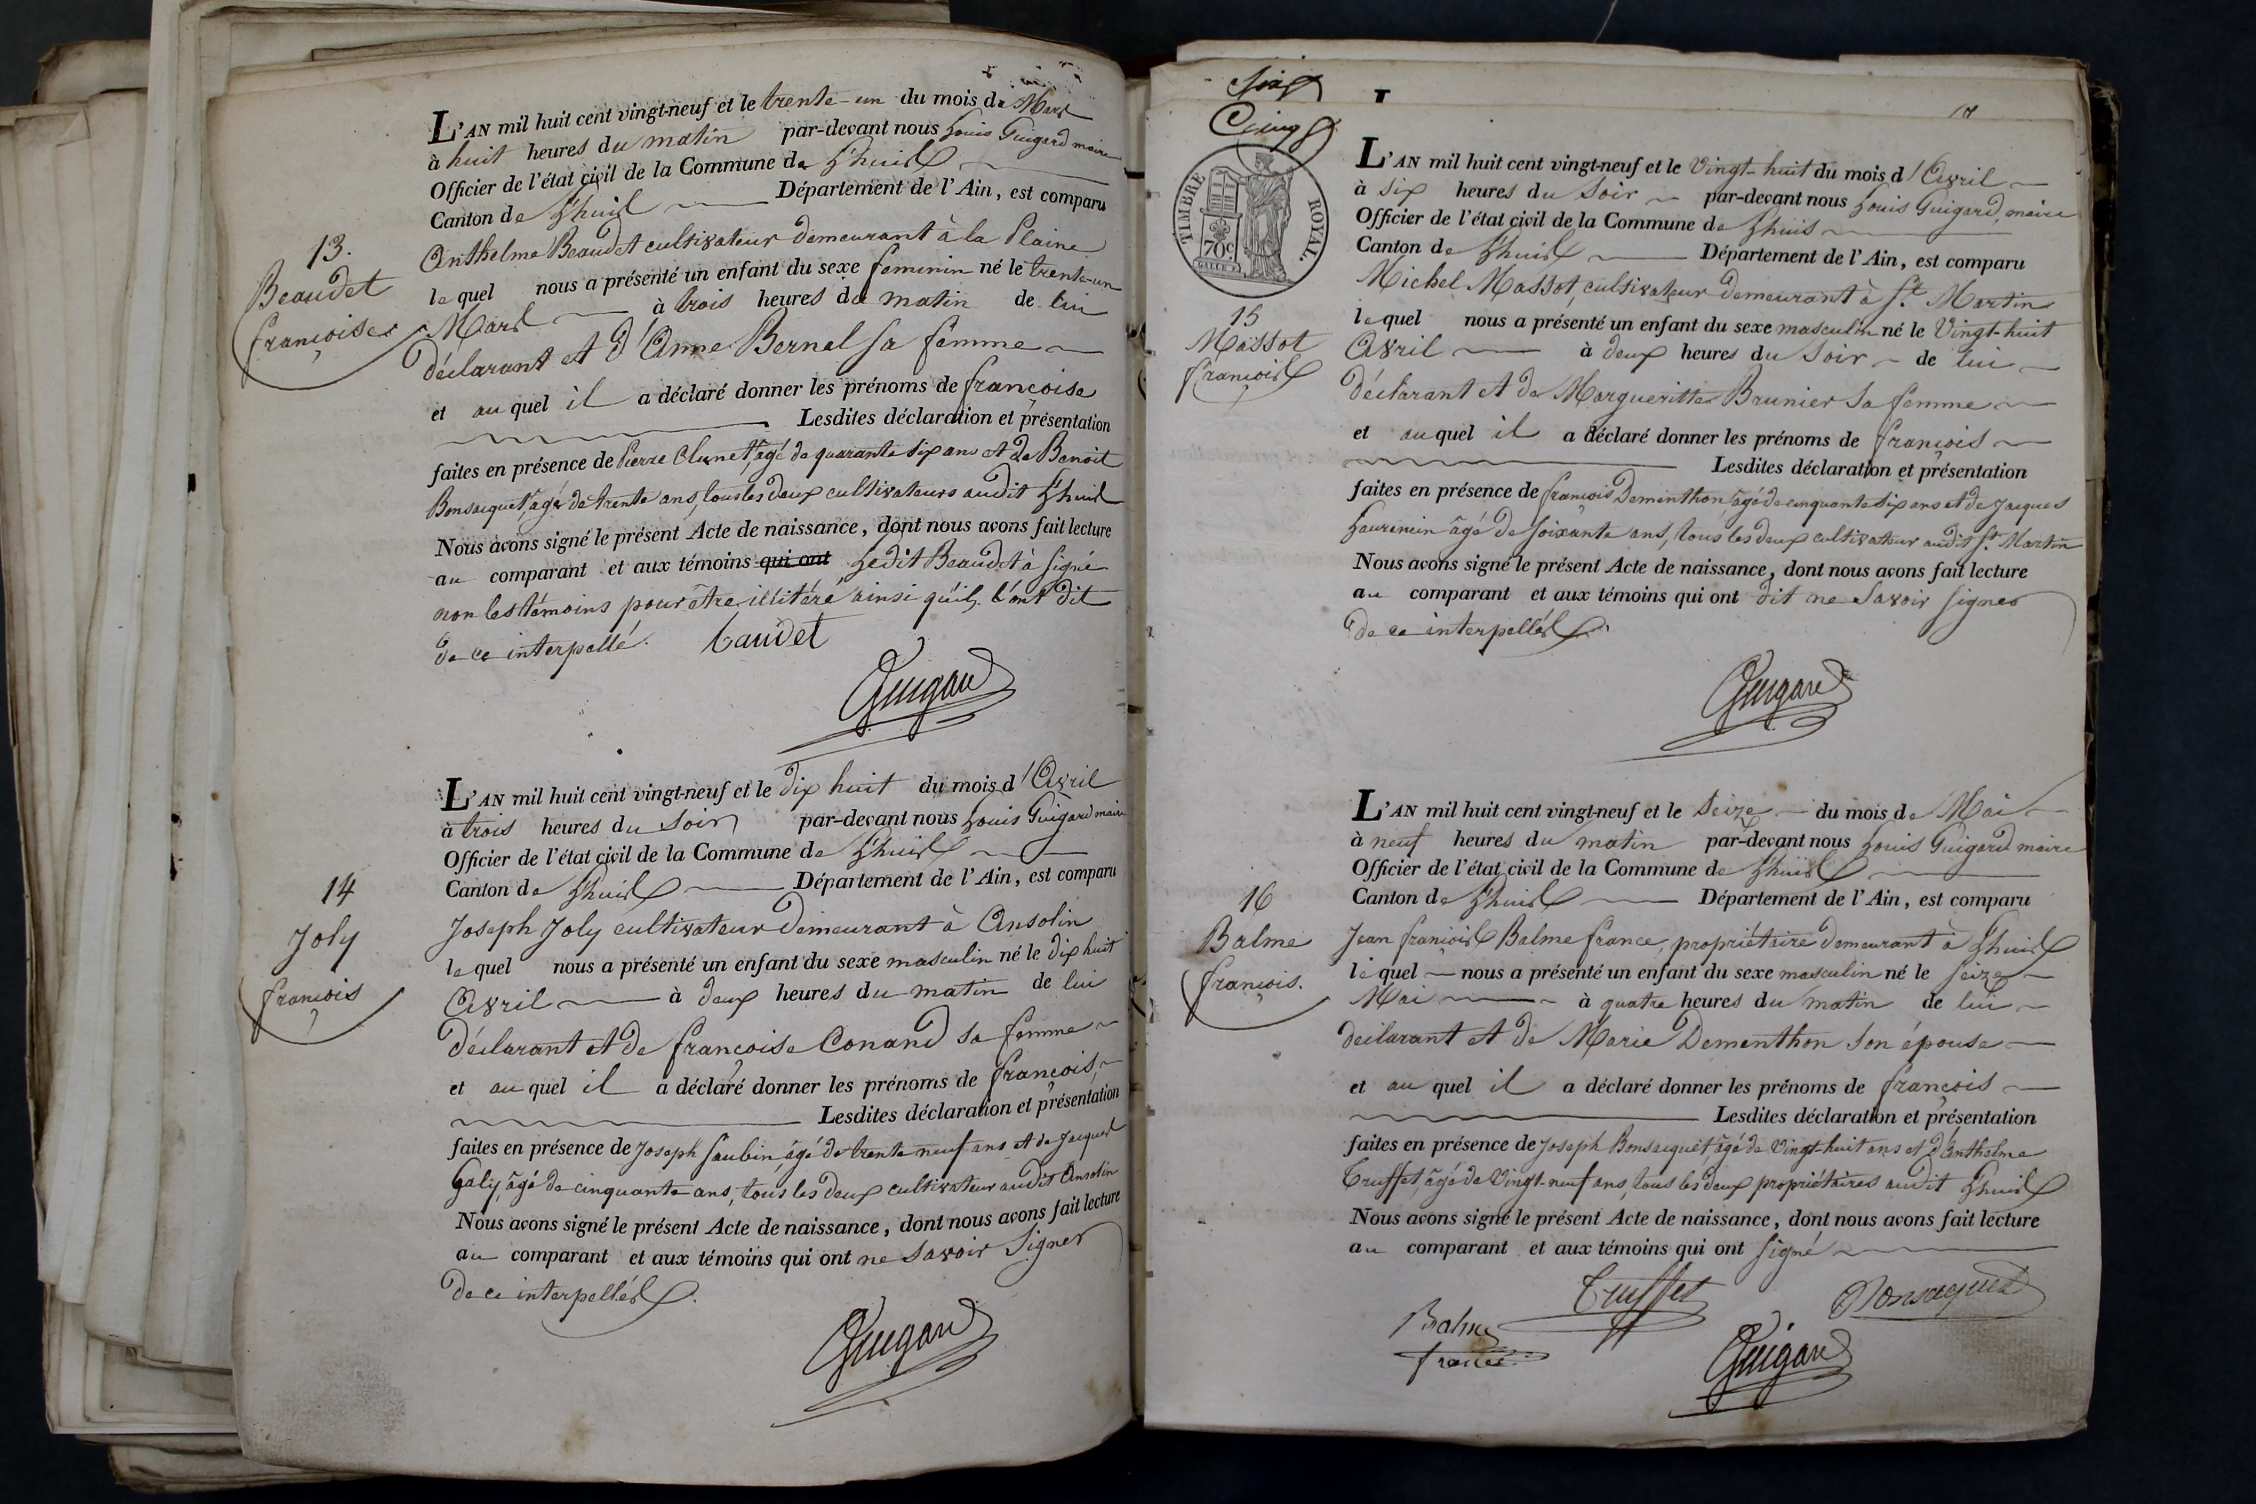 L'AN mil huit cent vingt-neuf et le trente-un du mois de Mars
à huit heures du matin par-devant nous Louis Guigard maire
Officier de l'état civil de la Commune de Lhuis
Canton de Lhuis Département de l'Ain, est comparu
13.
Beaudet
françoise
Anthelme Beaudet cultivateur demeurant à la Plaine
lequel nous a présenté un enfant du sexe feminin né le trente-un
Mars à trois heures du matin de lui
déclarant et d'Anne Bernel sa femme
et auquel il a déclaré donner les prénoms de françoise
Lesdites déclaration et présentation
faites en présence de Pierre Clunet, agé de quarante six ans et de Benoit
Bonsacquet, agé de trente ans, tous les deux cultivateurs audit Lhuis
Nous avons signé le présent Acte de naissance, dont nous avons fait lecture
au comparant et aux témoins qui ont Ledit Beaudet à signé
non les témoins pour être illitéré ainsi qu'ils l'ont dit
de ce interpellé. baudet
Guigard
L'AN mil huit cent vingt-neuf et le dix huit du mois d'Avril
à trois heures du soir par-devant nous Louis Guigard maire
Officier de l'état civil de la Commune de Lhuis
Canton de Lhuis Département de l'Ain, est comparu
14
Joly
françois
Joseph Joly cultivateur demeurant à Ansolin
lequel nous a présenté un enfant du sexe masculin né le dix huit
Avril à deux heures du matin de lui
déclarant et de françoise Conand sa femme
et auquel il a déclaré donner les prénoms de françois,
Lesdites déclaration et présentation
faites en présence de Joseph Saubin, âgé de trente neuf ans et de Jacques
Galy, âgé de cinquante ans, tous les deux cultivateur audit Ansolin
Nous avons signé le présent Acte de naissance, dont nous avons fait lecture
au comparant et aux témoins qui ont ne savoir signer
de ce interpellés.
Guigard
Cinq
TIMBRE ROYAL.
70c.
L'AN mil huit cent vingt-neuf et le Vingt-huit du mois d'Avril
à six heures du soir par-devant nous Louis Guigard, maire
Officier de l'état civil de la Commune de Lhuis
Canton de Lhuis Département de l'Ain, est comparu
15
Massot
françois
Michel Massot, cultivateur demeurant à St. Martin
lequel nous a présenté un enfant du sexe masculin né le Vingt-huit
Avril à deux heures du soir de lui
déclarant et de Margueritte Brunier sa femme
et auquel il a déclaré donner les prénoms de françois
Lesdites déclaration et présentation
faites en présence de françois Deminthon, âgé de cinquante six ans et de Jacques
Laurencin âgé de soixante ans, tous les deux cultivateur audit St. Martin
Nous avons signé le présent Acte de naissance, dont nous avons fait lecture
au comparant et aux témoins qui ont dit ne savoir signer
de ce interpellés.
Guigard
L'AN mil huit cent vingt-neuf et le seize du mois de Mai
à neuf heures du matin par-devant nous Louis Guigard maire
Officier de l'état civil de la Commune de Lhuis
Canton de Lhuis Département de l'Ain, est comparu
16
Balme
françois.
Jean françois Balme france, propriétaire demeurant à Lhuis
lequel nous a présenté un enfant du sexe masculin né le seize
Mai à quatre heures du matin de lui
déclarant et de Marie Dementhon son épouse
et auquel il a déclaré donner les prénoms de françois
Lesdites déclaration et présentation
faites en présence de Joseph Bonsacquet, âgé de Vingt-huit ans et d'Anthelme
Truffet, âgé de Vingt-neuf ans, tous les deux propriétaires audit Lhuis
Nous avons signé le présent Acte de naissance, dont nous avons fait lecture
au comparant et aux témoins qui ont signé
Truffet Bonsacquet
Balme
france
Guigard